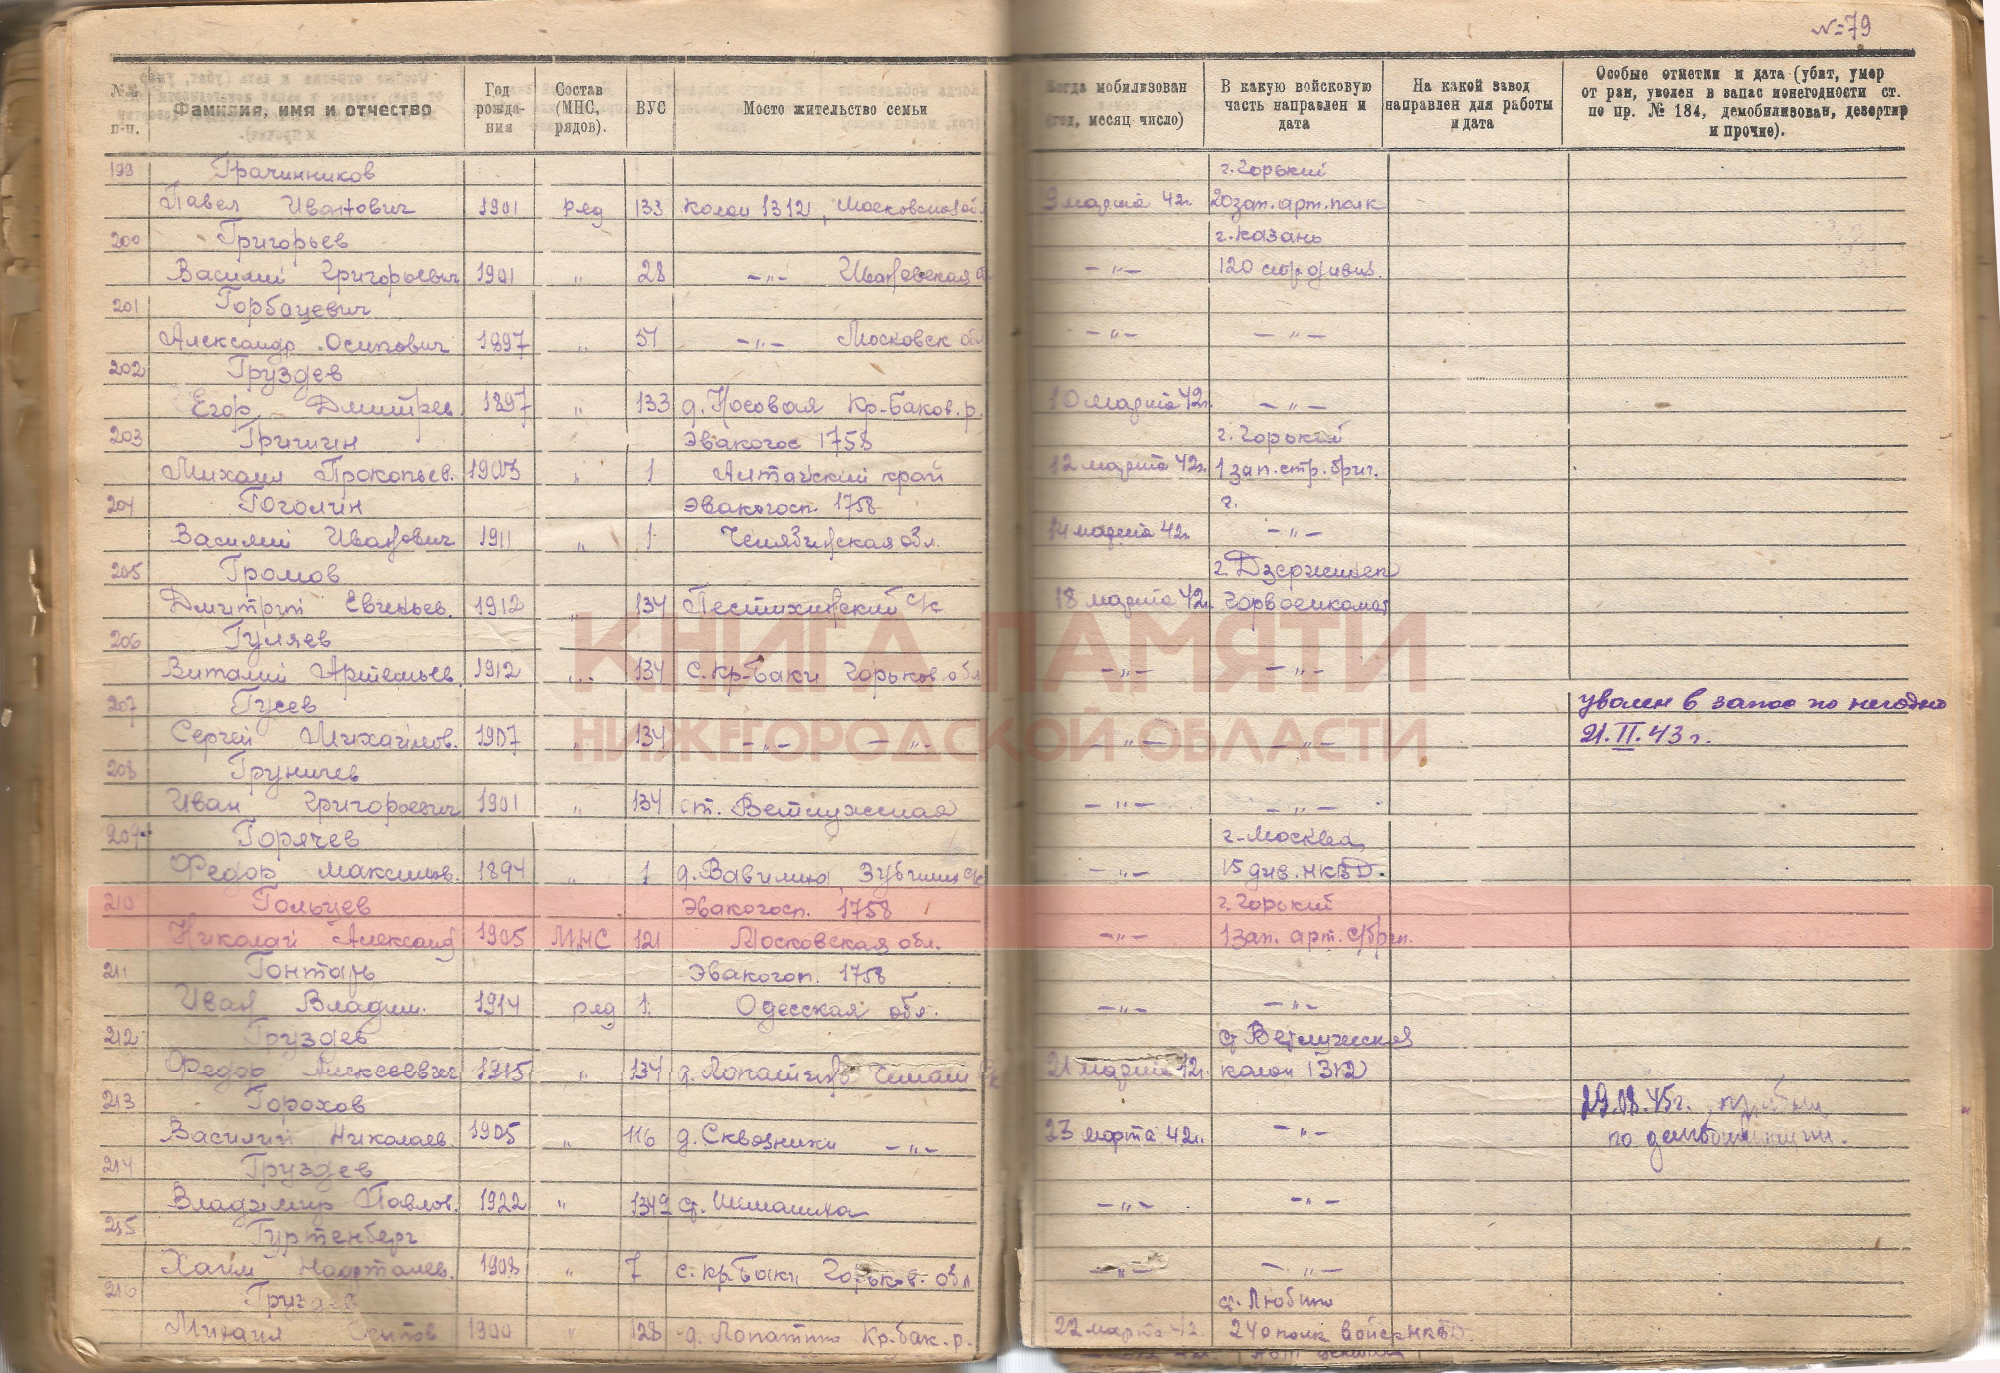 № 79
№№ п-п.
Фамилия, имя и отчество
Год рожде-ния
Состав (МНС, рядов).
ВУС
Место жительство семьи
Когда мобилизован (год, месяц число)
В какую войсковую часть направлен и дата
На какой завод направлен для работы и дата
Особые отметки и дата (убит, умер от ран, уволен в запас ионегодности ст. по пр. № 184, демобилизован, дезертир и прочие).
199 Грачинников г. Горький
Павел Иванович 1901 ряд 133 колон 1312, Московской об. 9 марта 42г. 20 зап. арт. полк
200 Григорьев г. Казань
Василий Григорьевич 1901 „ 28 –„– Ивановская –„– 120 стр дивиз.
201 Горбацевич
Александр Осипович 1897 „ 51 –„– Московск обл –„– –„–
202 Груздев
Егор Дмитрев. 1897 „ 133 д. Носовая Кр-Баков. р. 10 марта 42г. –„–
203 Гришин Эвакогос 1758 г. Горький
Михаил Прокопьев. 1903 „ 1 Алтайский край 12 марта 42г. 1 зап. стр. бриг.
204 Гоголин Эвакогосп. 1758 г.
Василий Иванович 1911 „ 1 Челябинская обл. 14 марта 42г. –„–
205 Громов г. Дзержинск
Дмитрий Евгеньев. 1912 „ 134 с/с 18 марта 42г. Горвоенкомат
206 Гуляев
Виталий Артемьев. 1912 „ 134 с. Кр-Баки Горьков. обл –„– –„–
КНИГА ПАМЯТИ
НИЖЕГОРОДСКОЙ ОБЛАСТИ
207 Гусев уволен в запас по негодно
Сергей Михайлов. 1907 „ 134 –„– –„– –„– –„– 21.II.43 г.
208 Груничев
Иван Григорьевич 1901 „ 134 ст. Ветлужская –„– –„–
209 Горячев г. Москва
Федор Максимов. 1894 „ 1 д. Вавилиха с/с –„– 15 див. НКВД.
210 Гольцев Эвакогосп. 1758 г. Горький
Николай Александ 1905 МНС 121 Московская обл. –„– 1 зап. арт.
211 Гонтарь Эвакогосп. 1758
Иван Владим. 1914 ряд 1. Одесская обл. –„– –„–
212 Груздев ст Ветлужская
Федор Алексеевич 1915 „ 134 д. 21 марта 42г. колон 1312
213 Горохов 29.08.45г. прибыл
Василий Николаев. 1905 „ 116 д. Сквозники –„– 23 марта 42г. –„– по демобилизации.
214 Груздев
Владимир Павлов. 1922 „ 134 ст. Шеманиха –„– –„–
215 Гуртенберг
Хаим Нафталев. 1903 „ 7 с. кр Баки Горьков. обл –„– –„–
216 ст. Люблино
Михаил 1900 „ 128 д. Лопатино Кр. бак. р. 22 марта 42 240 полк войск НКВД.